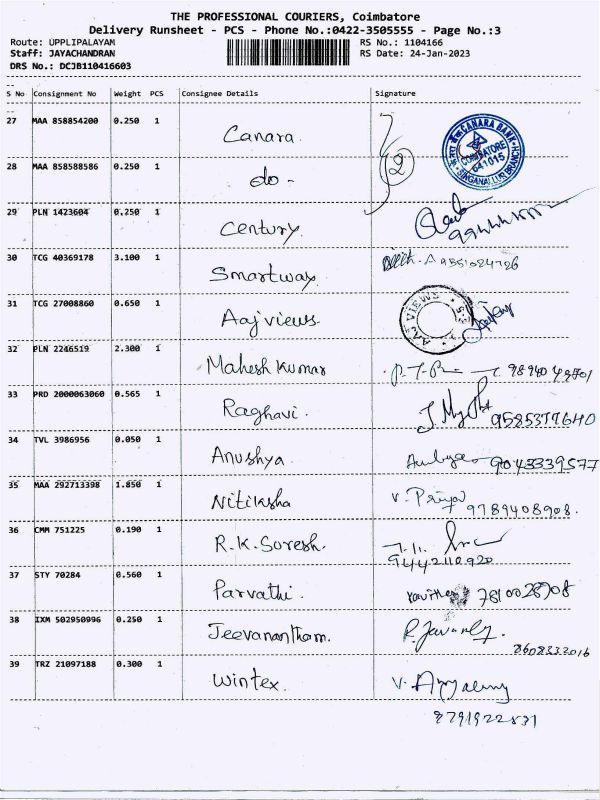 THE PROFESSIONAL COURIERS, Coimbatore
Delivery Runsheet - PCS - Phone No.:0422-3505555 - Page No.:3
Route: UPPLIPALAYAM RS No.: 1104166
Staff: JAYACHANDRAN RS Date: 24-Jan-2023
DRS No.: DCJB110416603
S No Consignment No Weight PCS Consignee Details Signature
27 MAA 858854200 0.250 1 Canara
CANARA BANK COIMBATORE 641015 SINGANALLUR BRANCH
28 MAA 858588586 0.250 1 do - 2
29 PLN 1423604 0.250 1 Century
30 TCG 40369178 3.100 1 Smartway
31 TCG 27008860 0.650 1 Aaj views AAJ VIEWS
32 PLN 2246519 2.300 1 Mahesh Kumar
33 PRD 2000063060 0.565 1 Raghavi 9585377640
34 TVL 3986956 0.050 1 Anushya 9043339577
35 MAA 292713398 1.850 1 Nitiksha V. Priya 9789408908
36 CMM 751225 0.190 1 R.K.Suresh.
9442110920
37 STY 70284 0.560 1 Parvathi 7810028708
38 IXM 502950996 0.250 1 Jeevanantham.
8608332016
39 TRZ 21097188 0.300 1 Wintex
8791922831